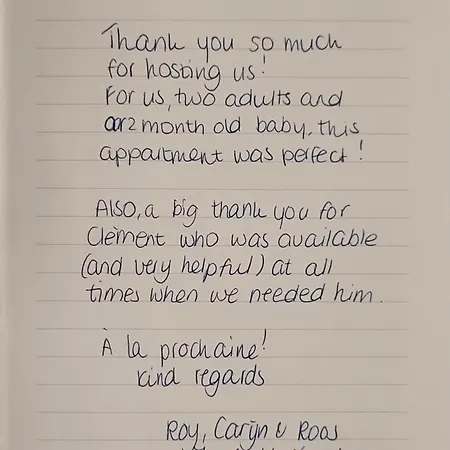 Thank you so much
for hosting us!
For us, two adults and
our 2 month old baby, this
appartment was perfect!
Also, a big thank you for
Clément who was available
(and very helpful) at all
times when we needed him.
À la prochaine!
kind regards
Roy, Carijn & Roos